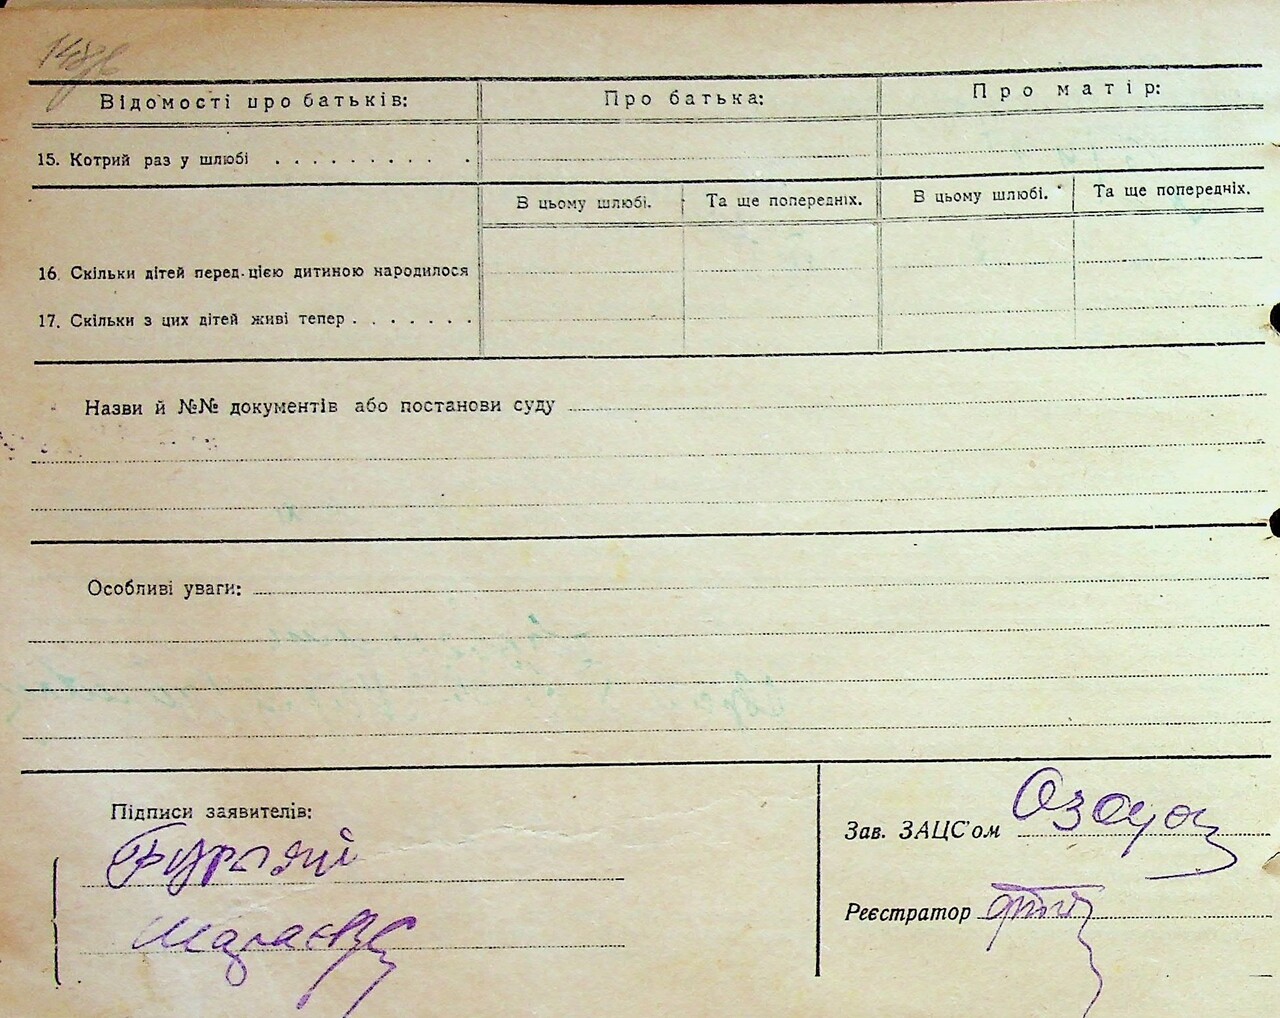 Відомості про батьків: Про батька: Про матір:
15. Котрий раз у шлюбі . . . . . . . . . .
В цьому шлюбі. Та ще попередніх. В цьому шлюбі. Та ще попередніх.
16. Скільки дітей перед цією дитиною народилося
17. Скільки з цих дітей живі тепер . . . . . . .
Назви й №№ документів або постанови суду
Особливі уваги:
Підписи заявителів:
Зав. ЗАЦС'ом
Реєстратор